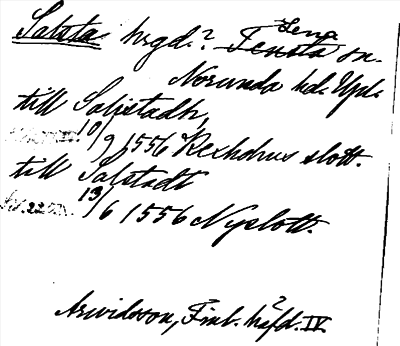 Salsta hrgd.? Tensta sn.
Lena
Norunda hd. Upl.
till Saljstadh,
10/9 1556 Rexholms slott.
till Salstadt
13/6 1556 Nyslott.
Arwidsson, Finl. häfd. IV.